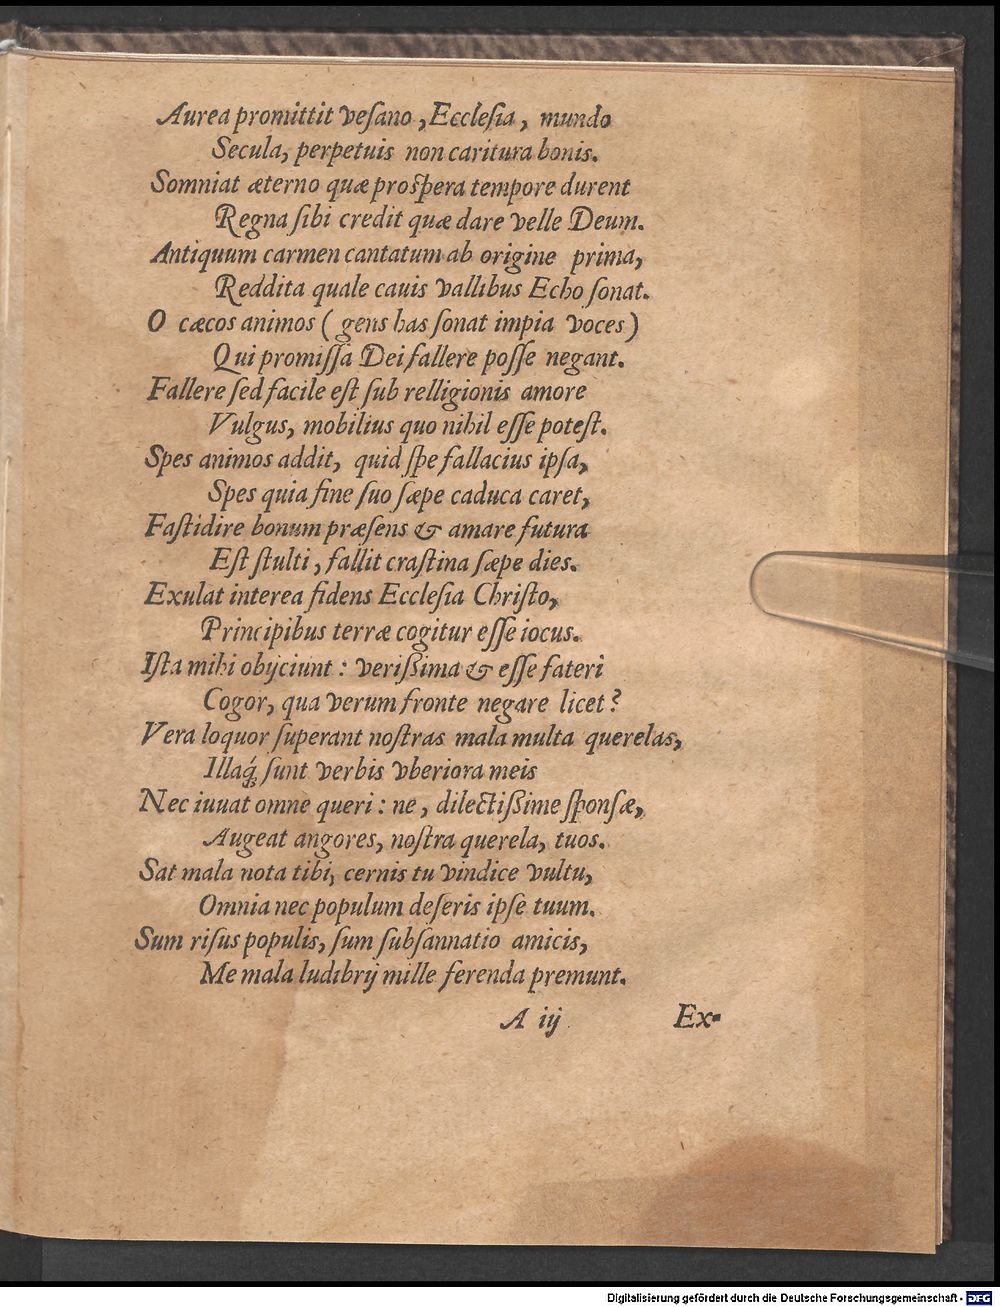 Aurea promittit veſano, Eccleſia, mundo
Secula, perpetuis non caritura bonis.
Somniat æterno quæ proſpera tempore durent
Regna ſibi credit quæ dare velle Deum.
Antiquum carmen cantatum ab origine prima,
Reddita quale cauis vallibus Echo ſonat.
O cæcos animos ( gens has ſonat impia voces)
Qui promiſſa Dei fallere poſſe negant.
Fallere ſed facile eſt ſub relligionis amore
Vulgus, mobilius quo nihil eſſe poteſt.
Spes animos addit, quid ſpe fallacius ipſa,
Spes quia fine ſuo ſæpe caduca caret,
Faſtidire bonum præſens & amare futura
Eſt ſtulti, fallit craſtina ſæpe dies.
Exulat interea fidens Eccleſia Chriſto,
Principibus terræ cogitur eſſe iocus.
Iſta mihi obijciunt: verißima & eſſe fateri
Cogor, qua verum fronte negare licet?
Vera loquor ſuperant noſtras mala multa querelas,
Illaq́; ſunt verbis vberiora meis
Nec iuuat omne queri: ne, dilectißime ſponſæ,
Augeat angores, noſtra querela, tuos.
Sat mala nota tibi, cernis tu vindice vultu,
Omnia nec populum deſeris ipſe tuum.
Sum riſus populis, ſum ſubſannatio amicis,
Me mala ludibrij mille ferenda premunt.
A iij Ex-
Digitalisierung gefördert durch die Deutsche Forschungsgemeinschaft - DFG